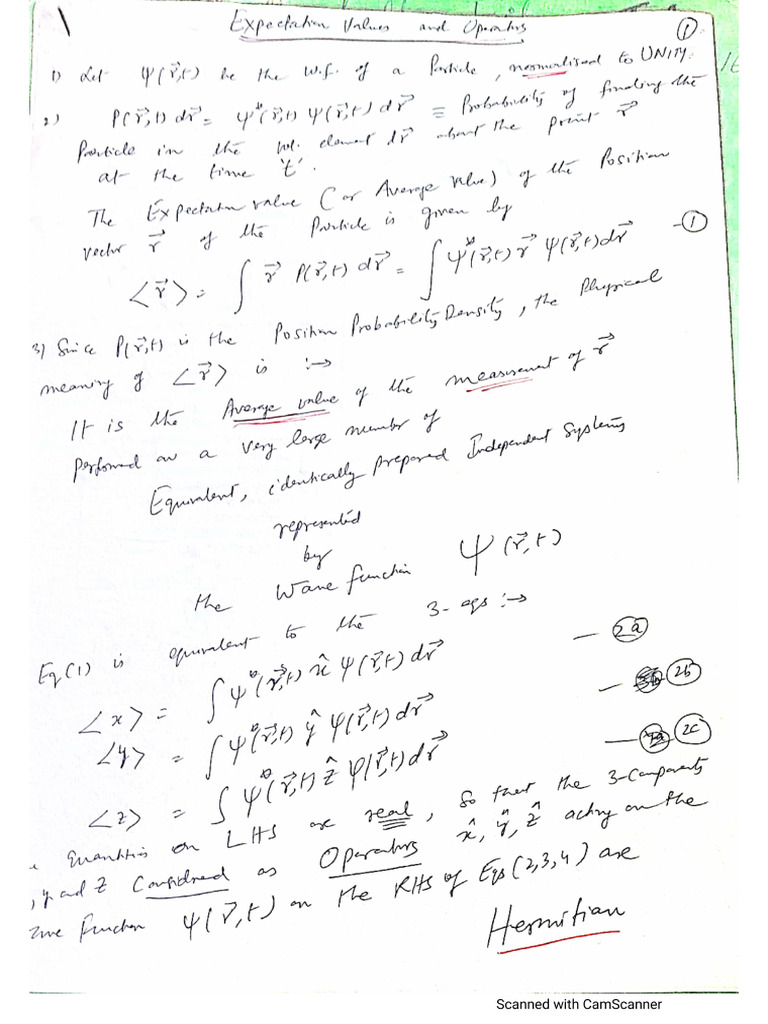 Expectation Values and Operators
①
1) Let ψ(r⃗,t) be the W.f. of a Particle, normalised to UNITY.
2) P(r⃗,t) dr⃗ = ψ*(r⃗,t) ψ(r⃗,t) dr⃗ ≡ Probability of finding the
Particle in the vol. element dr⃗ about the point r⃗
at the time 't'.
The Expectation value (or Average Value) of the Position
vector r⃗ of the Particle is given by
<r⃗> = ∫ r⃗ P(r⃗,t) dr⃗ = ∫ ψ*(r⃗,t) r⃗ ψ(r⃗,t) dr⃗ —①
3) Since P(r⃗,t) is the Position Probability Density, the Physical
meaning of <r⃗> is :→
It is the Average value of the measurement of r⃗
performed on a very large number of
Equivalent, identically prepared Independent Systems
represented
by
the Wave function ψ(r⃗,t)
Eq(1) is equivalent to the 3-eqs :→
<x> = ∫ ψ*(r⃗,t) x̂ ψ(r⃗,t) dr⃗ — 2a
<y> = ∫ ψ*(r⃗,t) ŷ ψ(r⃗,t) dr⃗ — 2b
<z> = ∫ ψ*(r⃗,t) ẑ ψ(r⃗,t) dr⃗ — 2c
Quantities on LHS are real, so that the 3-Components
, y and z Considered as Operators x̂, ŷ, ẑ acting on the
function ψ(r⃗,t) on the RHS of Eqs (2,3,4) are
Hermitian
Scanned with CamScanner